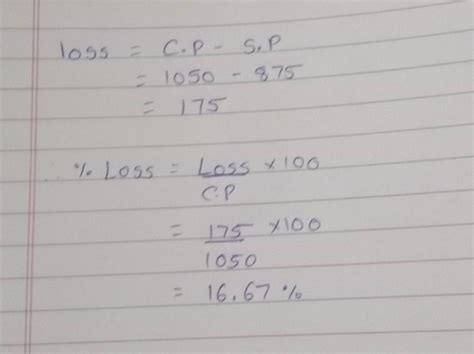 loss = C.P - S.P
= 1050 - 875
= 175
% Loss = Loss × 100
C.P
= 175 × 100
1050
= 16.67 %